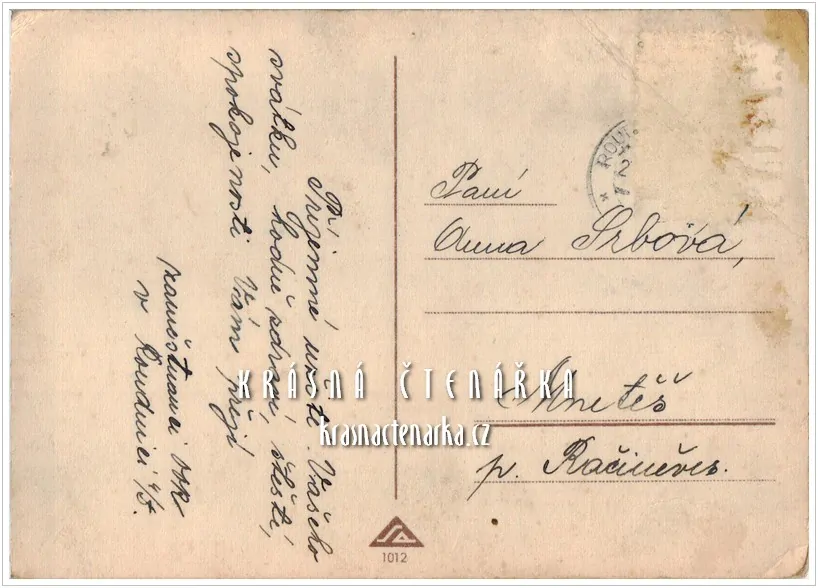 Příjemné užití Vašeho
svátku, hodně zdraví, štěstí,
spokojenosti Vám přejí
zaměstnanci
v Roudnici n/L.
ROU
2
Paní
Anna Srbová,
Mnetěš
p. Račiněves.
KRÁSNÁ ČTENÁŘKA
krasnactenarka.cz
1012